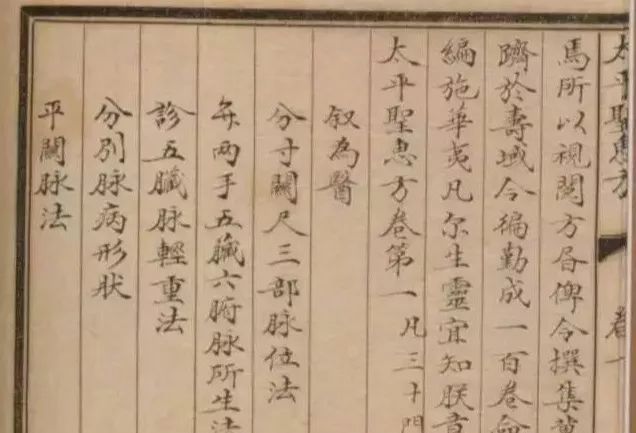 太平聖惠方 卷一
馬所以視閱方昏俾令撰集
躋於壽域今編勒成一百卷命
編施華夷凡尔生靈宜知朕意
太平聖惠方卷第一凡三十門
叙為醫
分寸關尺三部脉位法
弁两手五臟六腑脉所生法
診五臟脉輕重法
分別脉病形狀
平關脉法